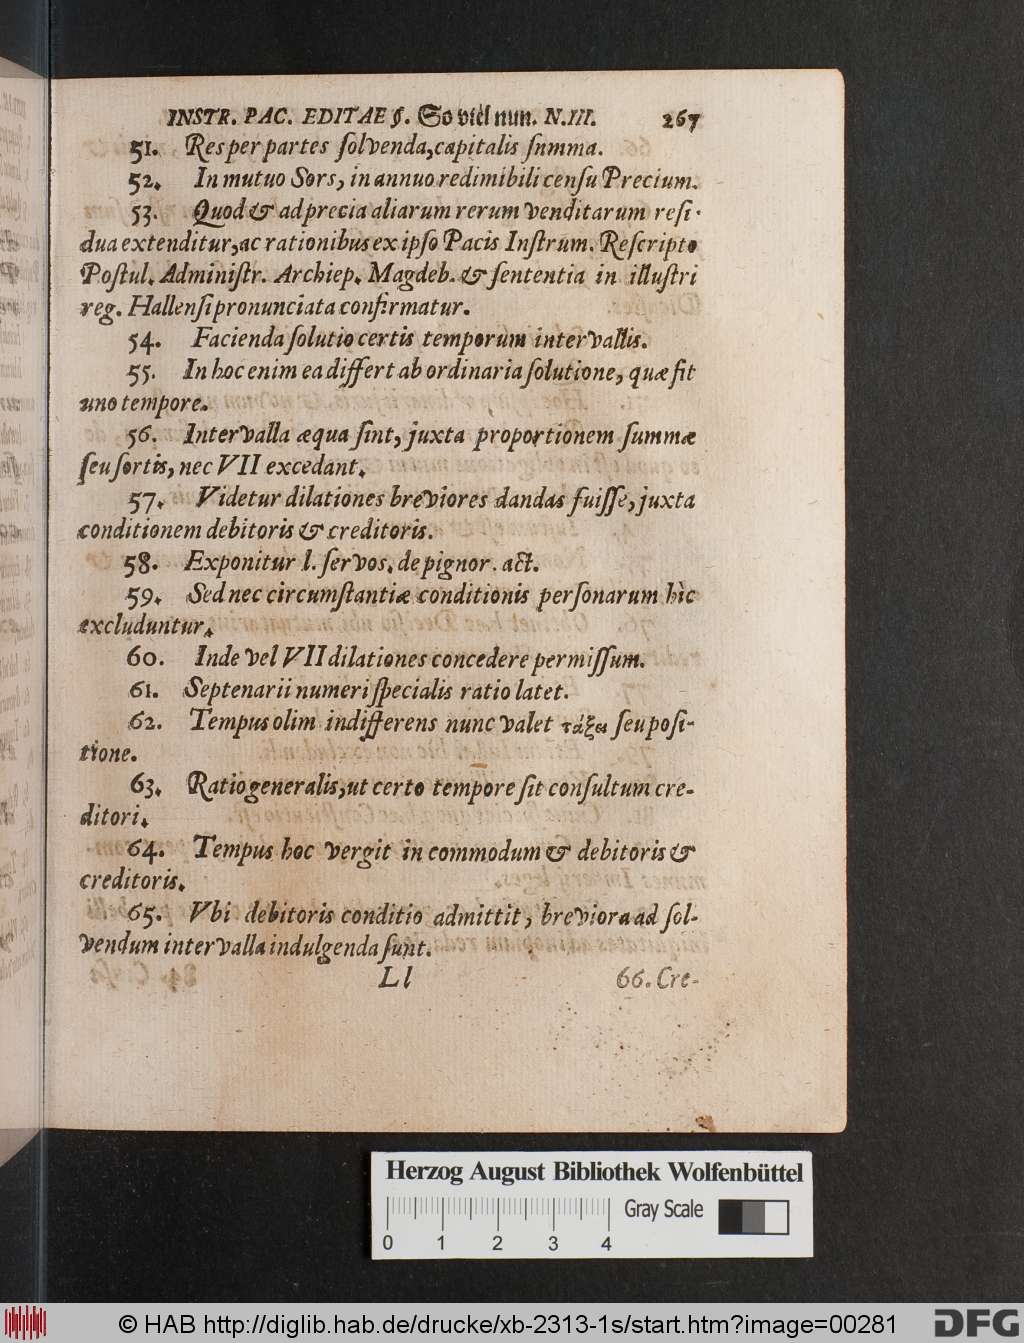 INSTR. PAC. EDITAE §. So viel nun. N.III. 267
51. Res per partes ſolvenda, capitalis ſumma.
52. In mutuo Sors, in annuo redimibili cenſu Precium.
53. Quod & ad precia aliarum rerum venditarum reſi-
dua extenditur, ac rationibus ex ipſo Pacis Inſtrum. Reſcripto
Poſtul. Adminiſtr. Archiep. Magdeb. & ſententia in illuſtri
reg. Hallenſi pronunciata confirmatur.
54. Facienda ſolutio certis temporum intervallis.
55. In hoc enim ea differt ab ordinaria ſolutione, quæ fit
uno tempore.
56. Intervalla æqua ſint, juxta proportionem ſummæ
ſeu ſortis, nec VII excedant.
57. Videtur dilationes breviores dandas fuiſſe, juxta
conditionem debitoris & creditoris.
58. Exponitur l. ſervos. de pignor. act.
59. Sed nec circumſtantiæ conditionis perſonarum hìc
excluduntur.
60. Inde vel VII dilationes concedere permiſſum.
61. Septenarii numeri ſpecialis ratio latet.
62. Tempus olim indifferens nunc valet τάξει ſeu poſi-
tione.
63. Ratio generalis, ut certo tempore ſit conſultum cre-
ditori.
64. Tempus hoc vergit in commodum & debitoris &
creditoris.
65. Vbi debitoris conditio admittit, breviora ad ſol-
vendum intervalla indulgenda ſunt.
Ll 66. Cre-
Herzog August Bibliothek Wolfenbüttel
Gray Scale
0 1 2 3 4
© HAB http://diglib.hab.de/drucke/xb-2313-1s/start.htm?image=00281
DFG